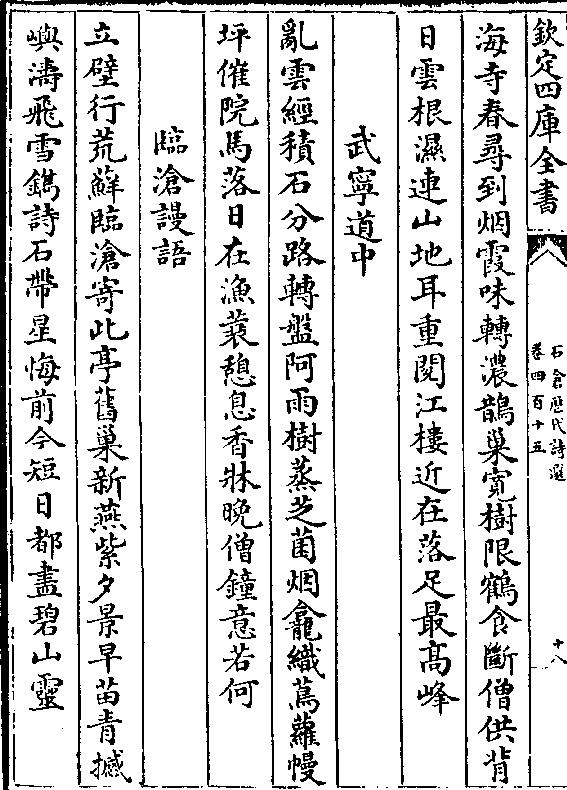 欽定四庫全書
石倉歷代詩選
卷四百十五
十八
海寺春尋到烟霞味轉濃鵲巢寛樹限鶴食斷僧供背
日雲根濕連山地耳重閱江樓近在落足最髙峰
武寧道中
亂雲經積石分路轉盤阿雨樹蒸芝菌烟龕織蔦蘿幔
坪催院馬落日在漁蓑憩息香牀晚僧鐘意若何
臨滄謾語
立壁行荒蘚臨滄寄此亭舊巢新燕紫夕景早苗青撼
嶼濤飛雪鐫詩石帶星悔前今短日都盡碧山靈